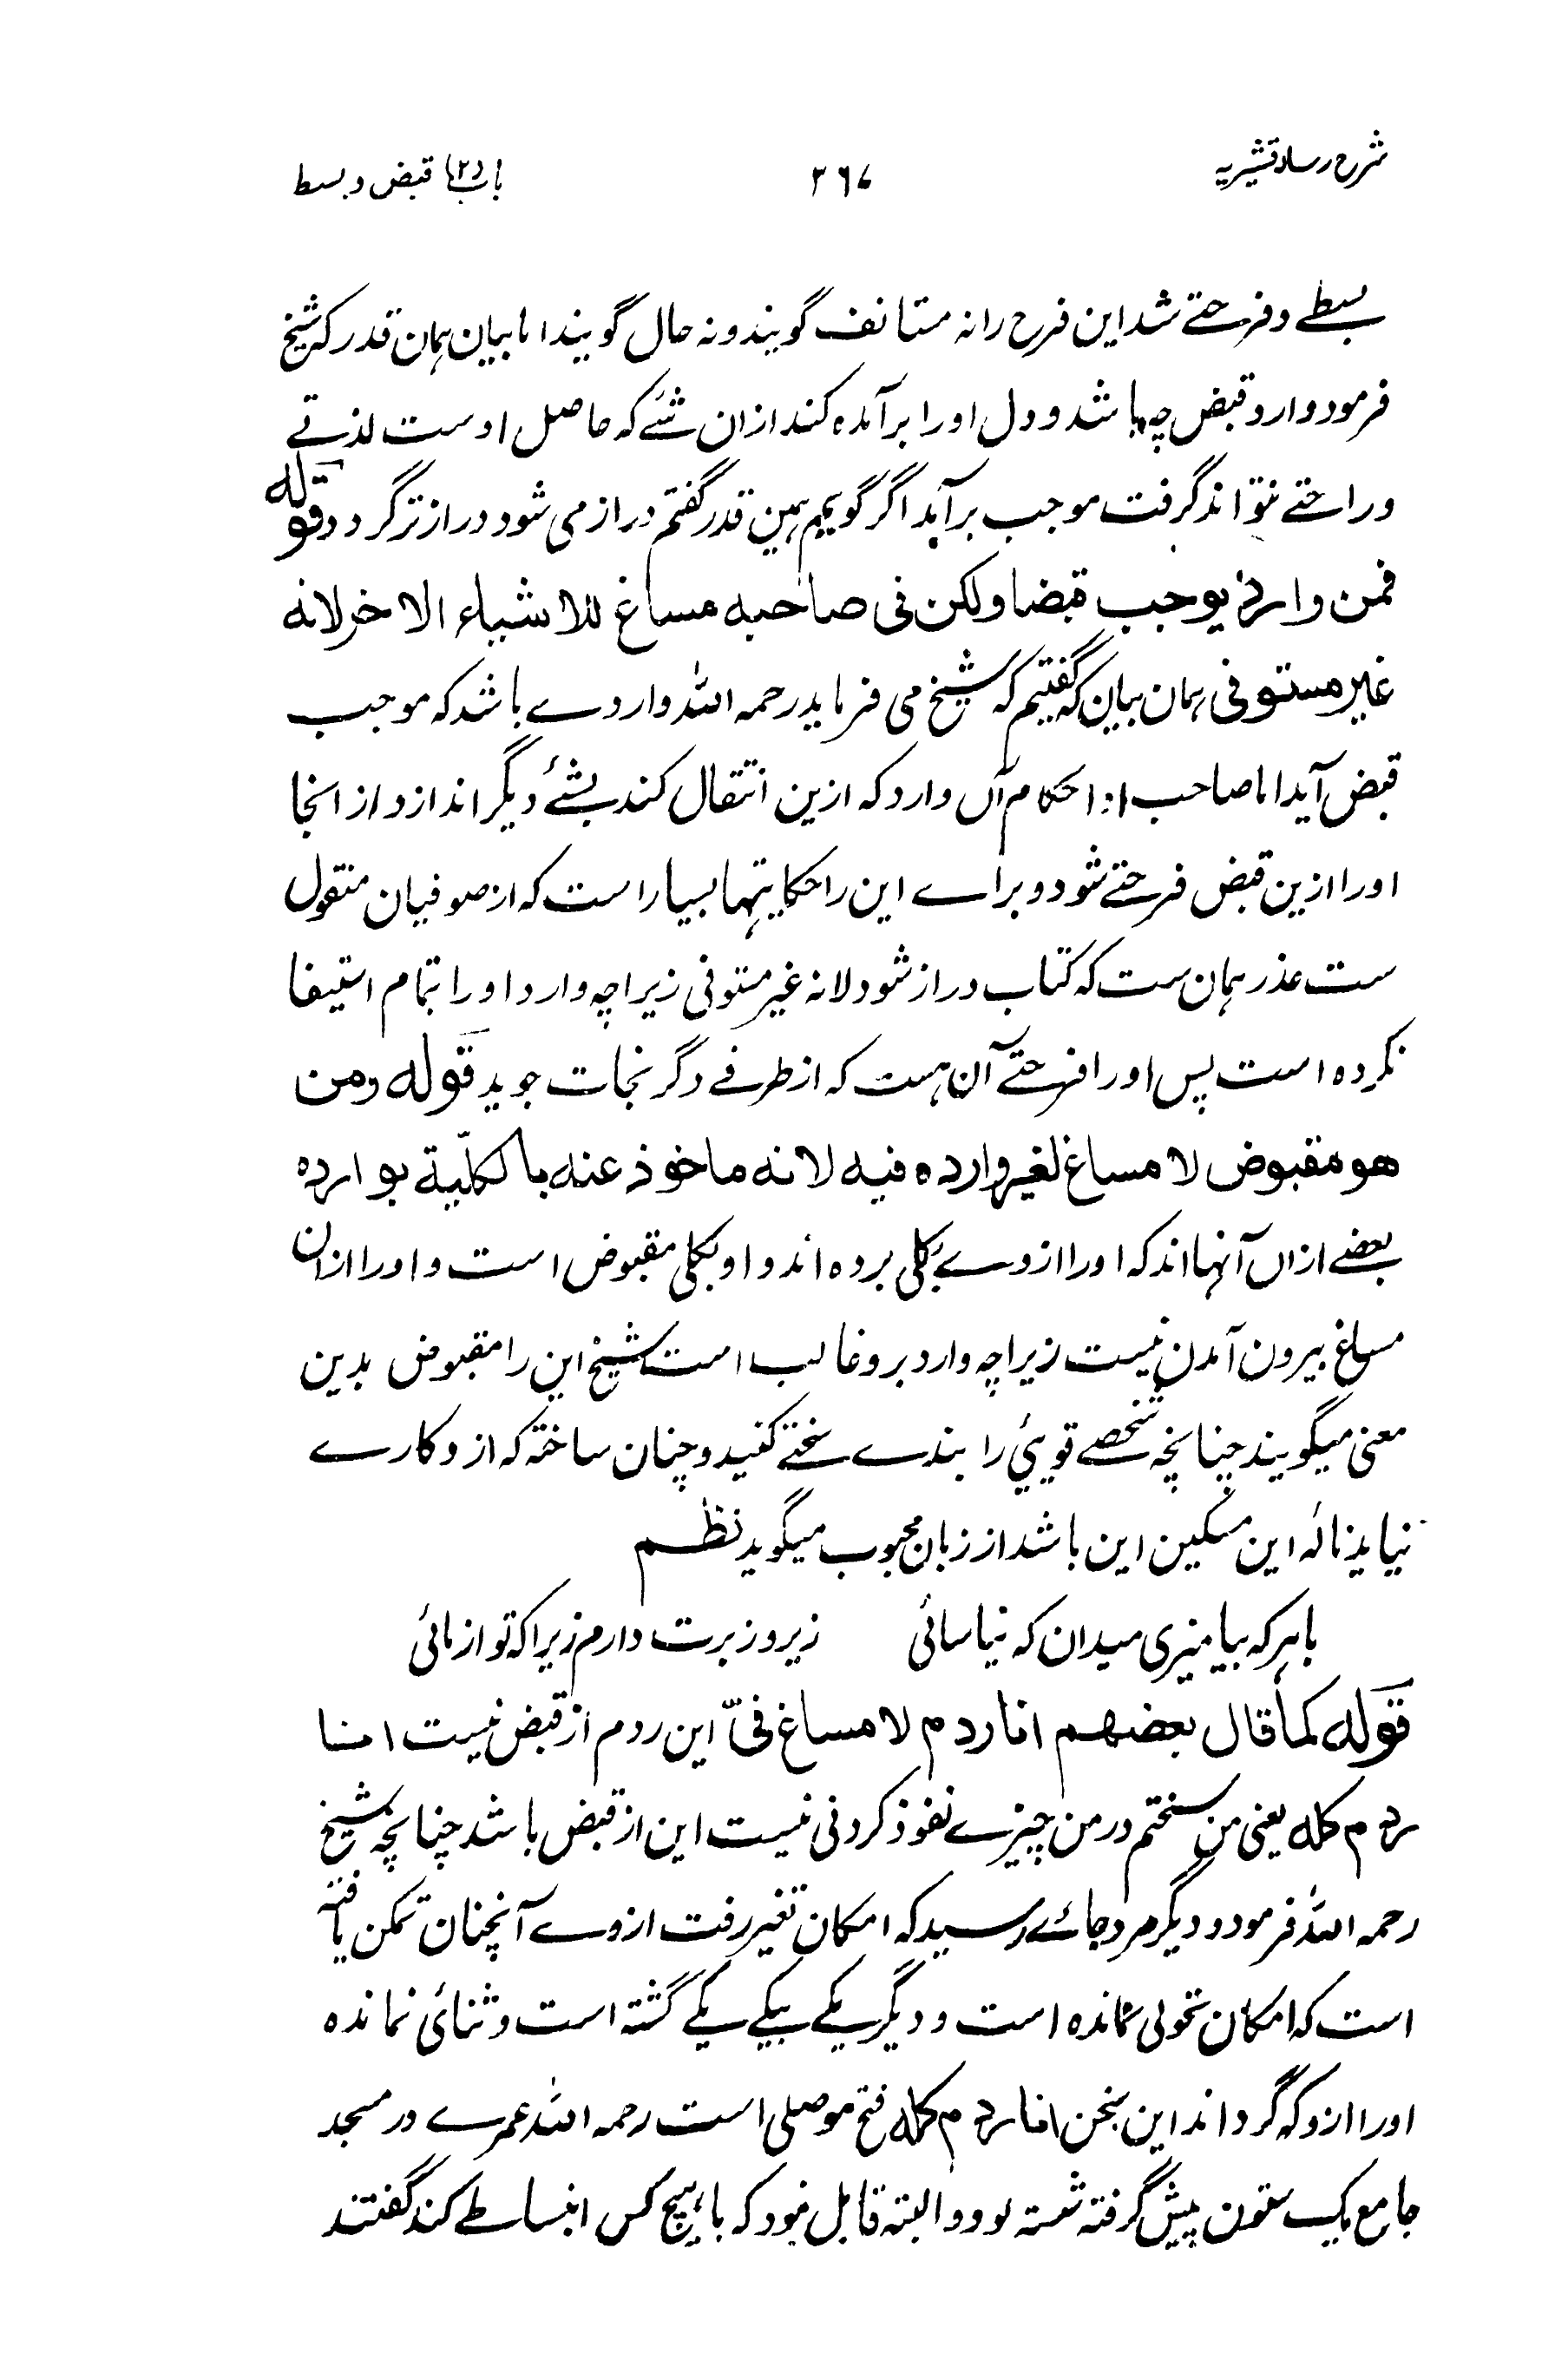 شرح رساله قشیریه ۳۶۷ باب (۲) قبض و بسط
بسطے و فرحتے شد این فرح را نہ مستانف گویند و نہ حال گویند اما بیان ہمان قدر کہ شیخ
فرمود وارد قبض چہ باشد و دل او را برآمدہ کند ازان شئے کہ حاصل اوست لذتے
و راحتے نتواند گرفت موجب برآید اگر گویم ہمین قدر گفتم دراز می شود دراز تر گردد قوله
فمن وارد یوجب قبضا ولکن فی صاحبه مساغ للاشیاء الاخر لانه
غیر مستوفی ہمان بیان کہ گفتیم کہ شیخ می فرماید رحمہ اللہ واردے باشد کہ موجب
قبض آید اما صاحب او احکام آں وارد کہ ازین انتقال کند بشئے دیگر اندازد از انجا
او را ازین قبض فرحتے شود و براے این را حکایتہا بسیار است کہ از صوفیان منقول
ست عذر ہمان ست کہ کتاب دراز شود لانہ غیر مستوفی زیراچہ وارد او را بتمام استیفا
نکردہ است پس او را فرحتے آن ہست کہ از طرفے دگر نجات جوید قوله ومن
هو مقبوض لا مساغ لغیر وارده فیه لانه ماخوذ عنه بالکلّیة بوارده
بعضے ازاں آنہا اند کہ او را از وے بکلی بردہ اند و او بکلی مقبوض است و او را ازان
مساغ بیرون آمدن نیست زیراچہ وارد برو غالب است شیخ این را مقبوض بدین
معنی میگویند چنانچہ شخصے قویئ را بندے سختے کنید و چنان ساختہ کہ از و کارے
نیاید نالہ این مسکین این باشد از زبان محبوب میگوید نظم
با ہر کہ بیامیزی میدان کہ نیاسائی زیر و زبرت دارم زیراکہ تو از مائی
قوله کما قال بعضهم انا ردم لا مساغ فیّ این ردم از قبض نیست انا
ردم کله یعنی من سختم در من چیزے نفوذ کردنی نیست این از قبض باشد چنانچہ شیخ
رحمہ اللہ فرمود و دیگر مرد جائے رسید کہ امکان تغیر رفت از وے آنچنان تمکن یافتہ
است کہ امکان تحولی نماندہ است و دیگر یکے بیکے یکے گشتہ است و ثنائی نماندہ
او را ازو کہ گرداند این سخن انا ردم کله فتح موصلی است رحمہ اللہ عمرے در مسجد
جامع یک ستون پیش گرفتہ نشستہ بود و البتہ قابل نبود کہ با ہیچ کس انبساطے کند گفتند